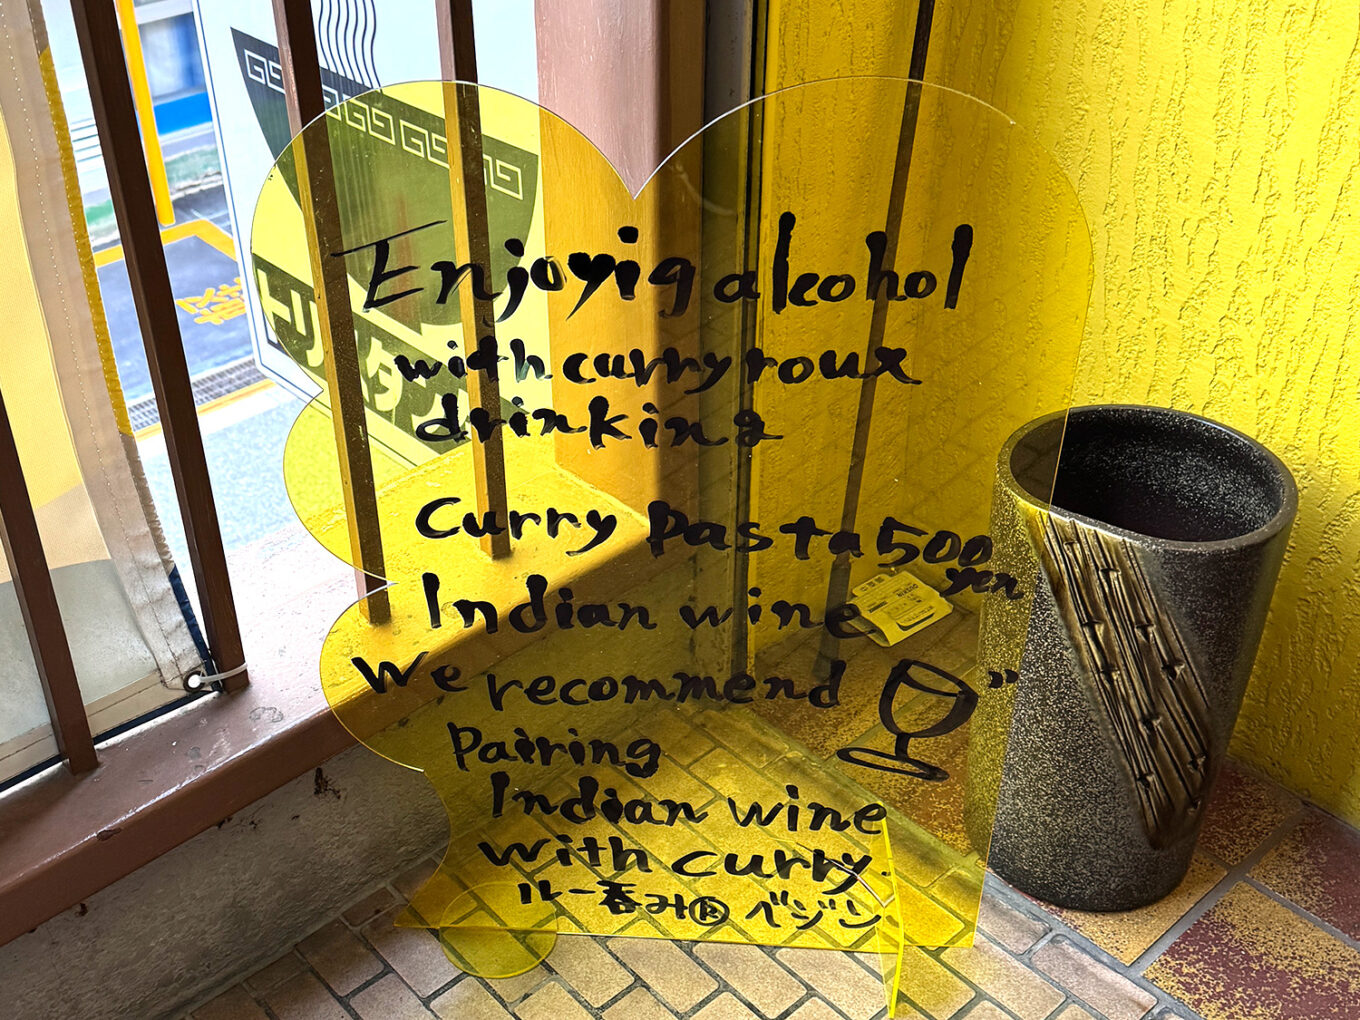 Enjoyig alcohol
with curry roux
drinking
Curry Pasta 500
yen
Indian wine
We recommend "
Pairing
Indian wine
with curry.
ルー呑み® ベジン